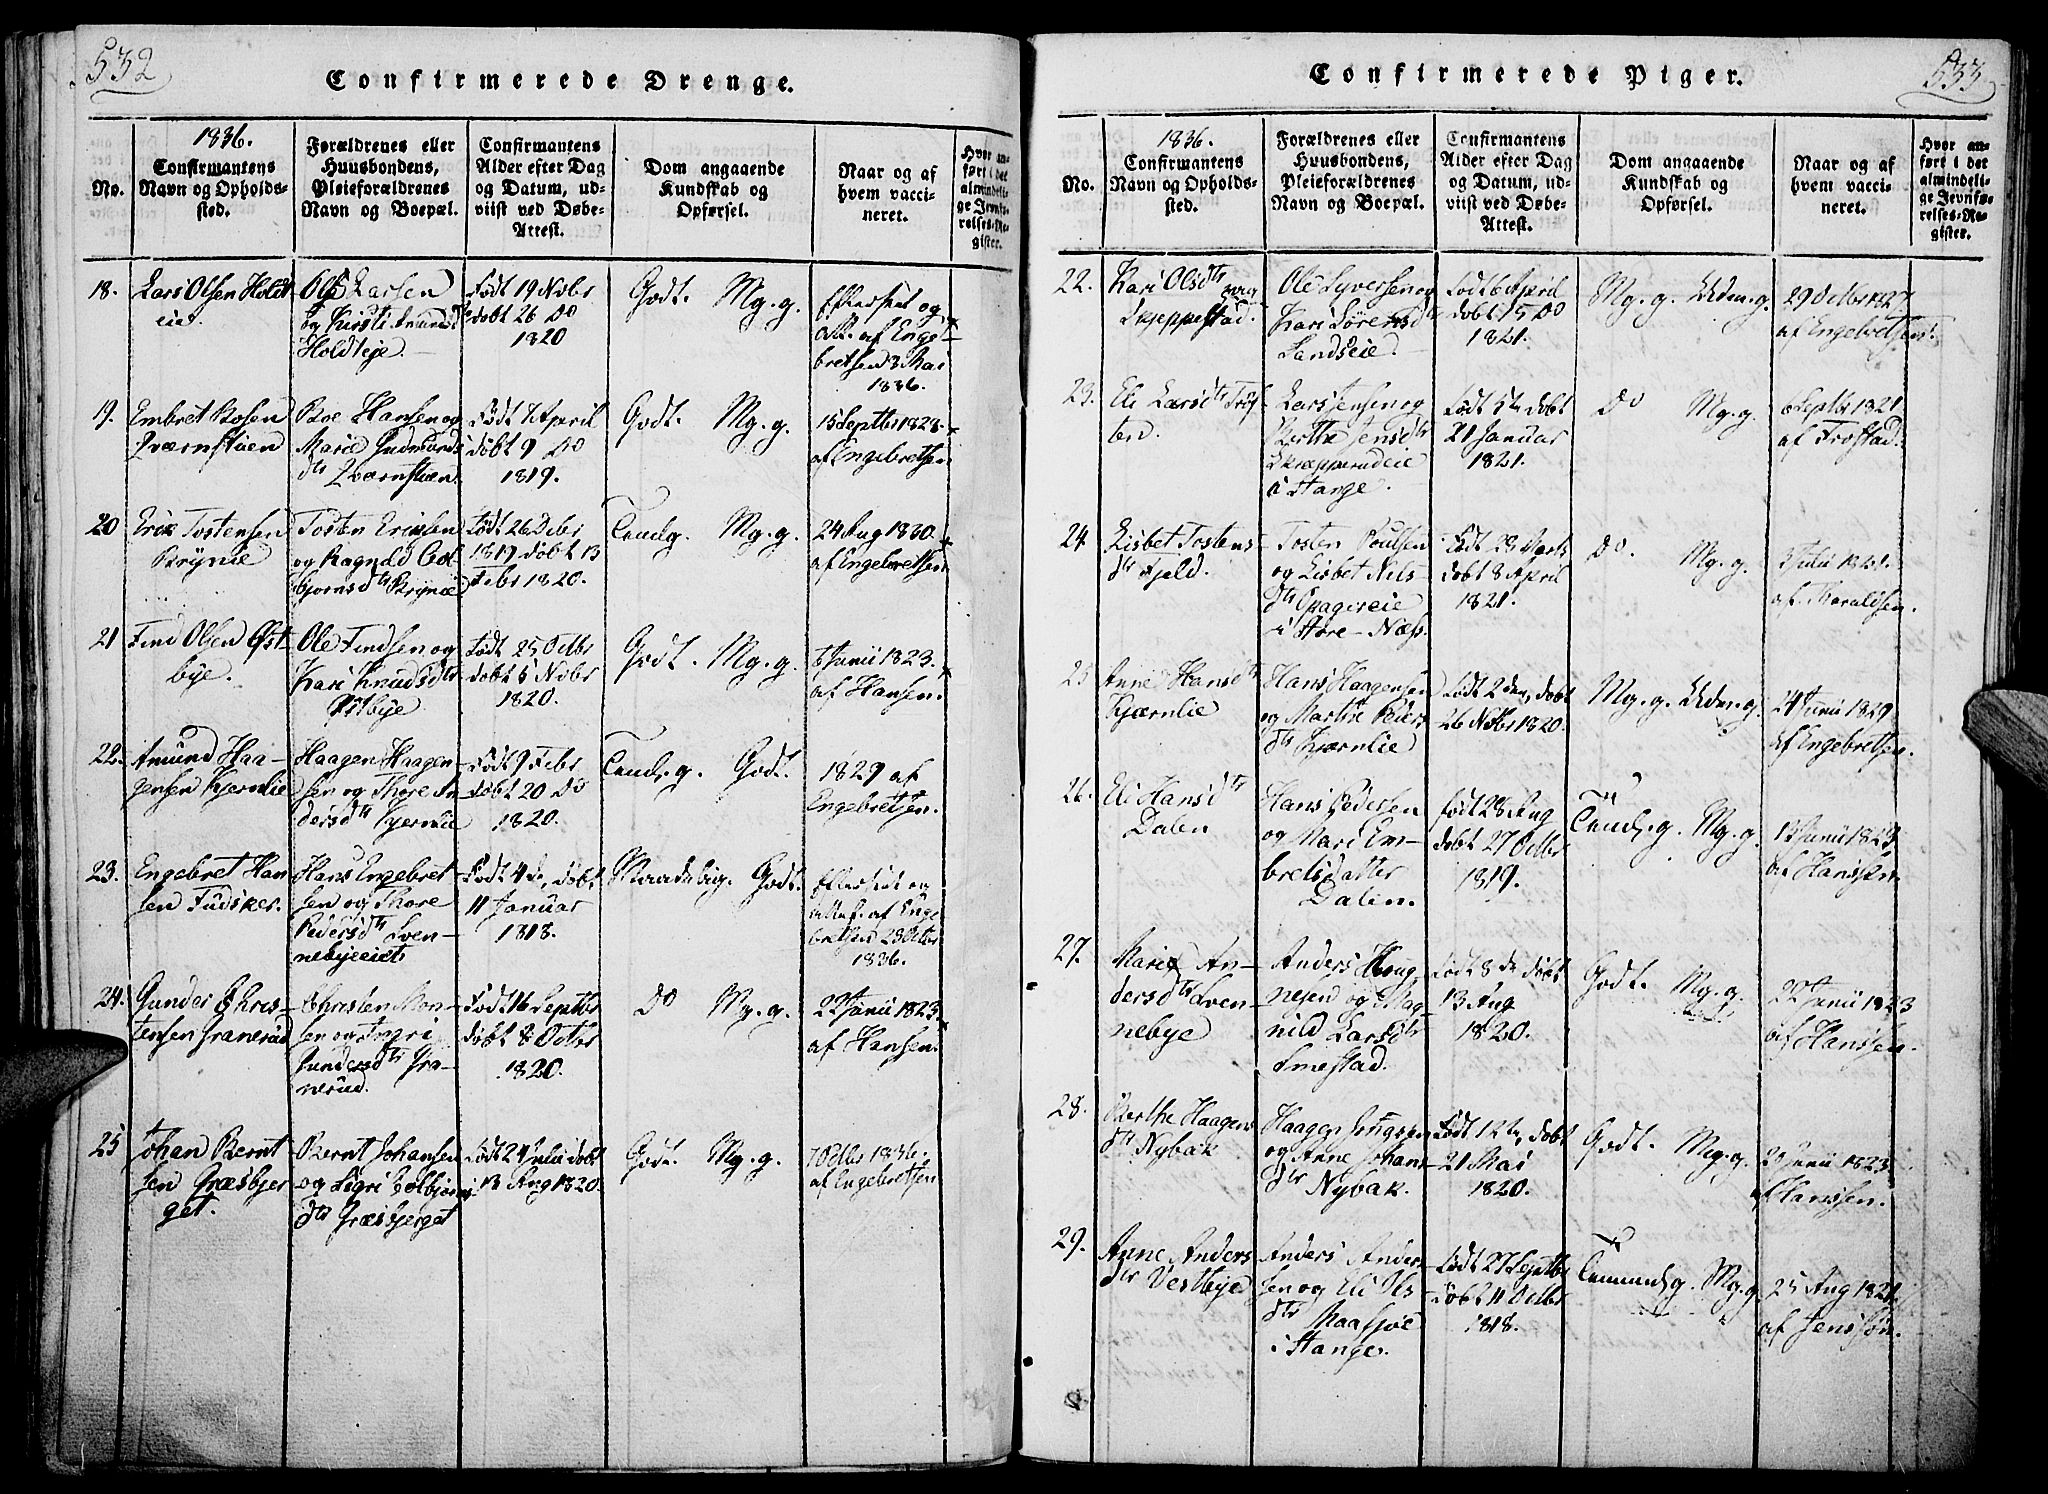 532
Confirmerede Drenge.
No.
1836.
Confirmantens
Navn og Opholds-
sted.
Forældrenes eller
Huusbondens,
Pleieforældrenes
Navn og Boepæl.
Confirmantens
Alder efter Dag
og Datum, ud-
viist ved Døbe-
Attest.
Dom angaaende
Kundskab og
Opførsel.
Naar og af
hvem vacci-
neret.
Hvor an-
ført i det
almindeli-
ge Jevnfø-
relses-Re-
gister.
18.
Lars Olsen Holdt
eie.
Ole Larsen
og Kirsti Amunds
Holdteje.
Født 19 Novbr
døbt 26 Do
1820
Godt. Mg. g.
Efterseet og
af Enge-
bretsen 3 Mai
1836.
19.
Embret Boesen
Qværnstuen
Boe Hansen og
Marie Gudmunds
dtr Qværnstuen.
Født 7 April
døbt 9 Do
1819.
Godt. Mg. g.
15 Septbr 1828.
af Engebretsen
20
Erik Tostensen
Brynie
Tosten Eriksen
og Ragnild Col
bjørnsdtr Brynie
Født 26 Debr
1819 døbt 13
Febr 1820.
Temlg. Mg. g.
24 Aug 1830.
af Engebretsen
21
Find Olsen Øst-
bye.
Ole Findsen og
Kari Knudsdtr
Østbye
Født 25 Octbr
døbt 5 Novbr
1820.
Godt. Mg. g.
6 Junii 1823.
af Hansen.
22.
Amund Haa-
gensen Kjernlie
Haagen Haagen-
sen og Thore An
dersdtr Kjernlie
Født 9 Febr
døbt 20 Do
1820.
Temlg. Godt.
1829 af
Engebretsen.
23.
Engebret Han
sen Fudsker.
Hans Engebret
sen og Thore
Pedersdtr Sven-
nebyeeiet
Født 4de, døbt
11 Januar
1818.
Maadelig. Godt.
Efterseet og
af Enge
bretsen 28 Octbr
1836.
24.
Gunder Chris-
tensen Granerud
Christen Mon-
sen og Ingri
Gundersdtr Gra-
nerud.
Født 16 Septbr
døbt 8 Octbr
1820.
Do Mg. g.
22 Junii 1823.
af Hansen.
25
Johan Bernt
sen Græsbjer
get.
Bernt Johansen
og Sigri Colbjørns
dtr Græsbjerget
Født 24 Julii døbt
13 Aug 1820.
Godt. Mg. g.
7 Octbr 1836.
af Engebretsen
533
Confirmerede Piger.
No.
1836.
Confirmantens
Navn og Opholds-
sted.
Forældrenes eller
Huusbondens,
Pleieforældrenes
Navn og Boepæl.
Confirmantens
Alder efter Dag
og Datum, ud-
viist ved Døbe-
Attest.
Dom angaaende
Kundskab og
Opførsel.
Naar og af
hvem vacci-
neret.
Hvor an-
ført i det
almindeli-
ge Jevnfø-
relses-Re-
gister.
22.
Kari Olsdtr
Skjeppestad.
Ole Syversen og
Kari Sørensdtr
Landseie.
Født 6 April
døbt 15 Do
1821.
Mg. g. Uden. g.
29 Octbr 1827
af Engebretsen.
23.
Eli Larsdtr Trøf-
ten.
Lars Jensen og
Berthe Jensdtr
Skræpperudeie
i Stange.
Født 5te, døbt
21 Januar
1821.
Do Mg. g.
6 Septbr 1821
af Frostad.
24
Lisbet Tostens-
dtr Fjeld.
Tosten Poulsen
og Lisbet Nils-
dtr Opagereie
i Store-Næss.
Født 23 Marts
døbt 8 April
1821.
Do. Mg. g.
3 Julii 1821.
af Tharaldsen.
25
Anne Hansdtr
Kjærnlie
Hans Haagensen
og Marthe Peders
dtr Kjærnlie
Født 2den, døbt
26 Novbr 1820.
Mg. g. Uden. g.
24 Junii 1829
af Engebretsen.
26.
Eli Hansdtr
Dalen
Hans Pedersen
og Mari Em-
bretsdatter
Dalen.
født 28 Aug
døbt 27 Octbr
1819.
Temlg. Mg. g.
13 Junii 1823
af Hanssen.
27.
Marie An-
dersdtr Sven-
nebye
Anders Haug-
nesen og Mag-
nild Larsdtr
Smestad.
Født 8de døbt
13 Aug
1820.
Godt. Mg. g.
22 Junii 1823
af Hanssen.
28.
Berthe Haagens
dtr Nybak
Haagen
og Anne Johans
dtr Nybak.
Født 12te, døbt
21 Mai
1820.
Godt. Mg. g.
2 Junii 1823.
af Hanssen.
29.
Anne Anders
dtr Vestbye
Anders Ander-
sen og Eli Ols
dtr Maasjøe
i Stange.
Født 27 Septbr
Døbt 11 Octbr
1818.
Temmelig. Mg. g.
25 Aug 1821.
af Jenssøn.